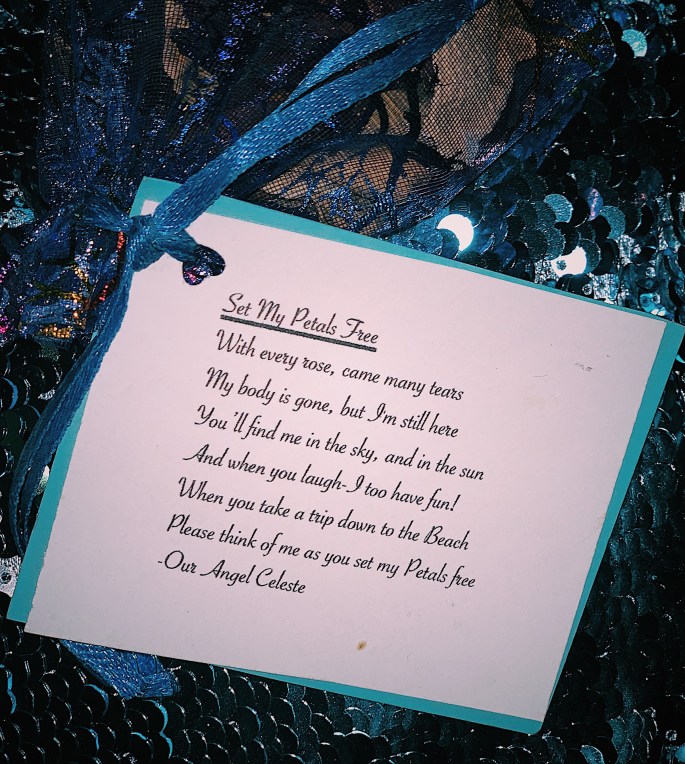 Set My Petals Free
With every rose, came many tears
My body is gone, but I'm still here
You'll find me in the sky, and in the sun
And when you laugh-I too have fun!
When you take a trip down to the Beach
Please think of me as you set my Petals free
-Our Angel Celeste